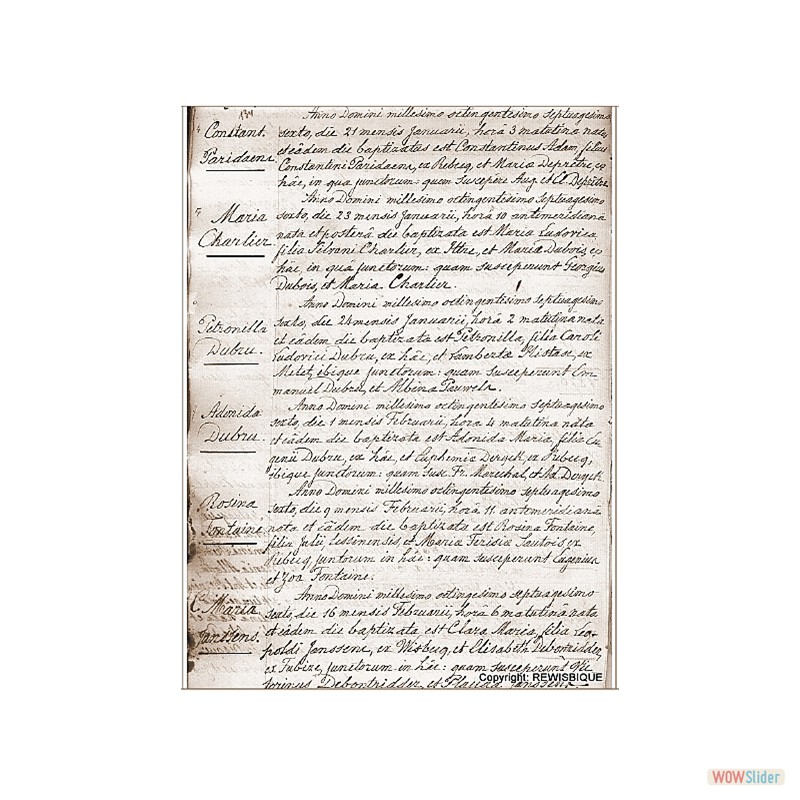 134
Constant.
Paridaens.
Anno Domini millesimo octingentesimo septuagesimo
sexto, die 21 mensis Januarii, horâ 3 matutina natus
et eâdem die baptizatus est Constantinus Adam, filius
Constantini Paridaens, ex Rebecq, et Maria Deprêtre, ex
hâc, in qua junctorum: quem suscepere Aug. et Cl. Deprêtre
Maria
Charlier.
Anno Domini millesimo octingentesimo septuagesimo
sexto, die 23 mensis Januarii, horâ 10 antimeridianâ
nata et posterâ die baptizata est Maria Ludovica
filia Charlier, ex et Maria Dubois, ex
hâc, in quâ junctorum: quam susceperunt Georgius
Dubois, et Maria Charlier.
Petronilla
Dubru.
Anno Domini millesimo octingentesimo septuagesimo
sexto, die 24 mensis Januarii, horâ 2 matutina nata
et eâdem die baptizata est Petronilla, filia Caroli
Ludovici Dubru, ex hâc, et Lambertæ ex
ibique junctorum: quam susceperunt Em-
manuel Dubru, et Albina Pauwels.
Adonida
Dubru.
Anno Domini millesimo octingentesimo septuagesimo
sexto, die 1 mensis Februarii, hora 4 matutina nata
et eâdem die baptizata est Adonida Maria, filia Eu
genii Dubru, ex hâc, et Euphemiæ Deryck, ex Rebecq,
ibique junctorum: quam susc. Fr. Marechal, et Ad. Deryck.
Rosina
Fontaine
Anno Domini millesimo octingentesimo septuagesimo
sexto, die 9 mensis Februarii, horâ 11 antemeridianâ
nata et eâdem die baptizata est Rosina Fontaine,
filia Julii, Lessinensis, et Mariæ Teresiæ Sautois, ex
Rebecq, junctorum in hâc: quam susceperunt Eugenius
et Zoa Fontaine.
C. Maria
Janssens.
Anno Domini millesimo octingesimo septuagesimo
sexto, die 16 mensis Februarii, horâ 6 matutina nata
et eâdem die baptizata est Clara Maria, filia Leo-
poldi Janssens, ex Wisbecq, et Elisabeth Debontridder,
ex Tubize, junctorum in hâc: quam susceperunt Vic
torinus Debontridder, et Placida Janssens.
Copyright: REWISBIQUE
WOWSlider